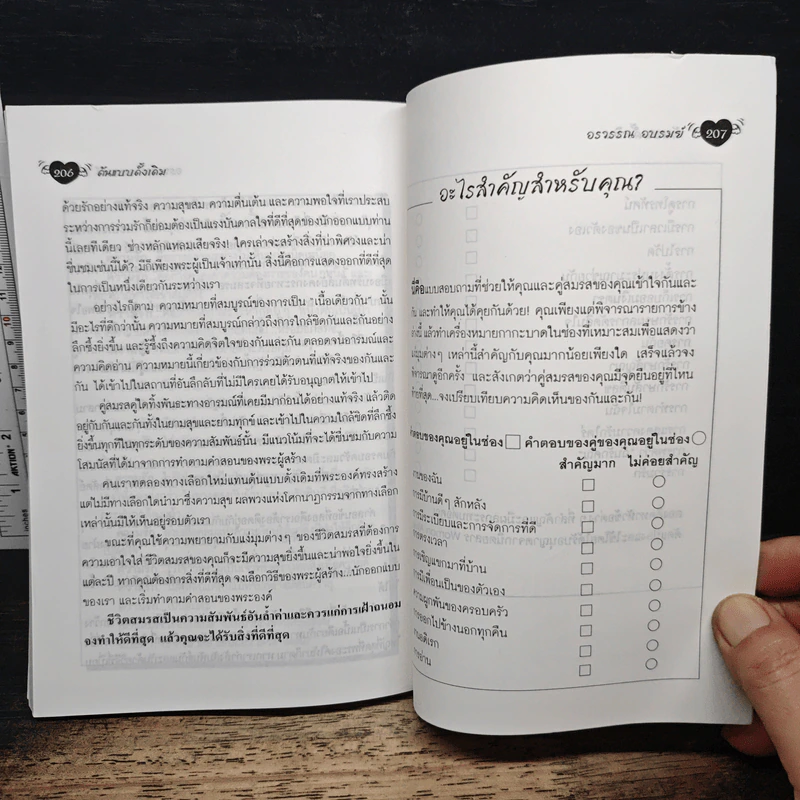 206 ต้นแบบดั้งเดิม
ด้วยรักอย่างแท้จริง ความสุขสม ความตื่นเต้น และความพอใจที่เราประสบ
ระหว่างการร่วมรักก็ย่อมต้องเป็นแรงบันดาลใจที่ดีที่สุดของนักออกแบบท่าน
นี้เลยทีเดียว ช่างหลักแหลมเสียจริง! ใครเล่าจะสร้างสิ่งที่น่าพิศวงและน่า
ชื่นชมเช่นนี้ได้? มีก็เพียงพระผู้เป็นเจ้าเท่านั้น สิ่งนี้คือการแสดงออกที่ดีที่สุด
ในการเป็นหนึ่งเดียวกันระหว่างเรา
อย่างไรก็ตาม ความหมายที่สมบูรณ์ของการเป็น "เนื้อเดียวกัน" นั้น
มีอะไรที่ดีกว่านั้น ความหมายที่สมบูรณ์กล่าวถึงการใกล้ชิดกันและกันอย่าง
ลึกซึ้งยิ่งขึ้น และรู้ซึ้งถึงความคิดจิตใจของกันและกัน ตลอดจนอารมณ์และ
ความคิดอ่าน ความหมายนี้เกี่ยวข้องกับการร่วมตัวตนที่แท้จริงของกันและ
กัน ได้เข้าไปในสถานที่อันลึกลับที่ไม่มีใครเคยได้รับอนุญาตให้เข้าไป
คู่สมรสคู่ใดทิ้งพันธะทางอารมณ์ที่เคยมีมาก่อนได้อย่างแท้จริง แล้วติด
อยู่กับกันและกันทั้งในยามสุขและยามทุกข์ และเข้าไปในความใกล้ชิดที่ลึกซึ้ง
ยิ่งขึ้นทุกทีในทุกระดับของความสัมพันธ์นั้น มีแนวโน้มที่จะได้ชื่นชมกับความ
โสมนัสที่ได้มาจากการทำตามคำสอนของพระผู้สร้าง
คนเราทดลองทางเลือกใหม่แทนต้นแบบดั้งเดิมที่พระองค์ทรงสร้าง
แต่ไม่มีทางเลือกใดนำมาซึ่งความสุข ผลพวงแห่งโศกนาฏกรรมจากทางเลือก
เหล่านั้นมีให้เห็นอยู่รอบตัวเรา
ขณะที่คุณใช้ความพยายามกับแง่มุมต่างๆ ของชีวิตสมรสที่ต้องการ
ความเอาใจใส่ ชีวิตสมรสของคุณก็จะมีความสุขยิ่งขึ้นและน่าพอใจยิ่งขึ้นใน
แต่ละปี หากคุณต้องการสิ่งที่ดีที่สุด จงเลือกวิธีของพระผู้สร้าง...นักออกแบบ
ของเรา และเริ่มทำตามคำสอนของพระองค์
ชีวิตสมรสเป็นความสัมพันธ์อันล้ำค่าและควรแก่การเฝ้าถนอม
จงทำให้ดีที่สุด แล้วคุณจะได้รับสิ่งที่ดีที่สุด
อรวรรณ อบรมย์ 207
อะไรสำคัญสำหรับคุณ?
นี่คือแบบสอบถามที่ช่วยให้คุณและคู่สมรสของคุณเข้าใจกันและ
กัน และทำให้คุณได้คุยกันด้วย! คุณเพียงแต่พิจารณารายการข้าง
ล่างนี้ แล้วทำเครื่องหมายกากะบาดในช่องที่เหมาะสมเพื่อแสดงว่า
แง่มุมต่างๆ เหล่านี้สำคัญกับคุณมากน้อยเพียงใด เสร็จแล้วจง
พิจารณาดูอีกครั้ง และสังเกตว่าคู่สมรสของคุณมีจุดยืนอยู่ที่ไหน
ท้ายที่สุด...จงเปรียบเทียบความคิดเห็นของกันและกัน!
คำตอบของคุณอยู่ในช่อง คำตอบของคู่ของคุณอยู่ในช่อง
สำคัญมาก ไม่ค่อยสำคัญ
งานของฉัน
การมีบ้านดีๆ สักหลัง
การมีระเบียบและการจัดการที่ดี
การตรงเวลา
การเชิญแขกมาที่บ้าน
การมีเพื่อนเป็นของตัวเอง
ความผูกพันของครอบครัว
การออกไปข้างนอกทุกคืน
งานอดิเรก
การอ่าน